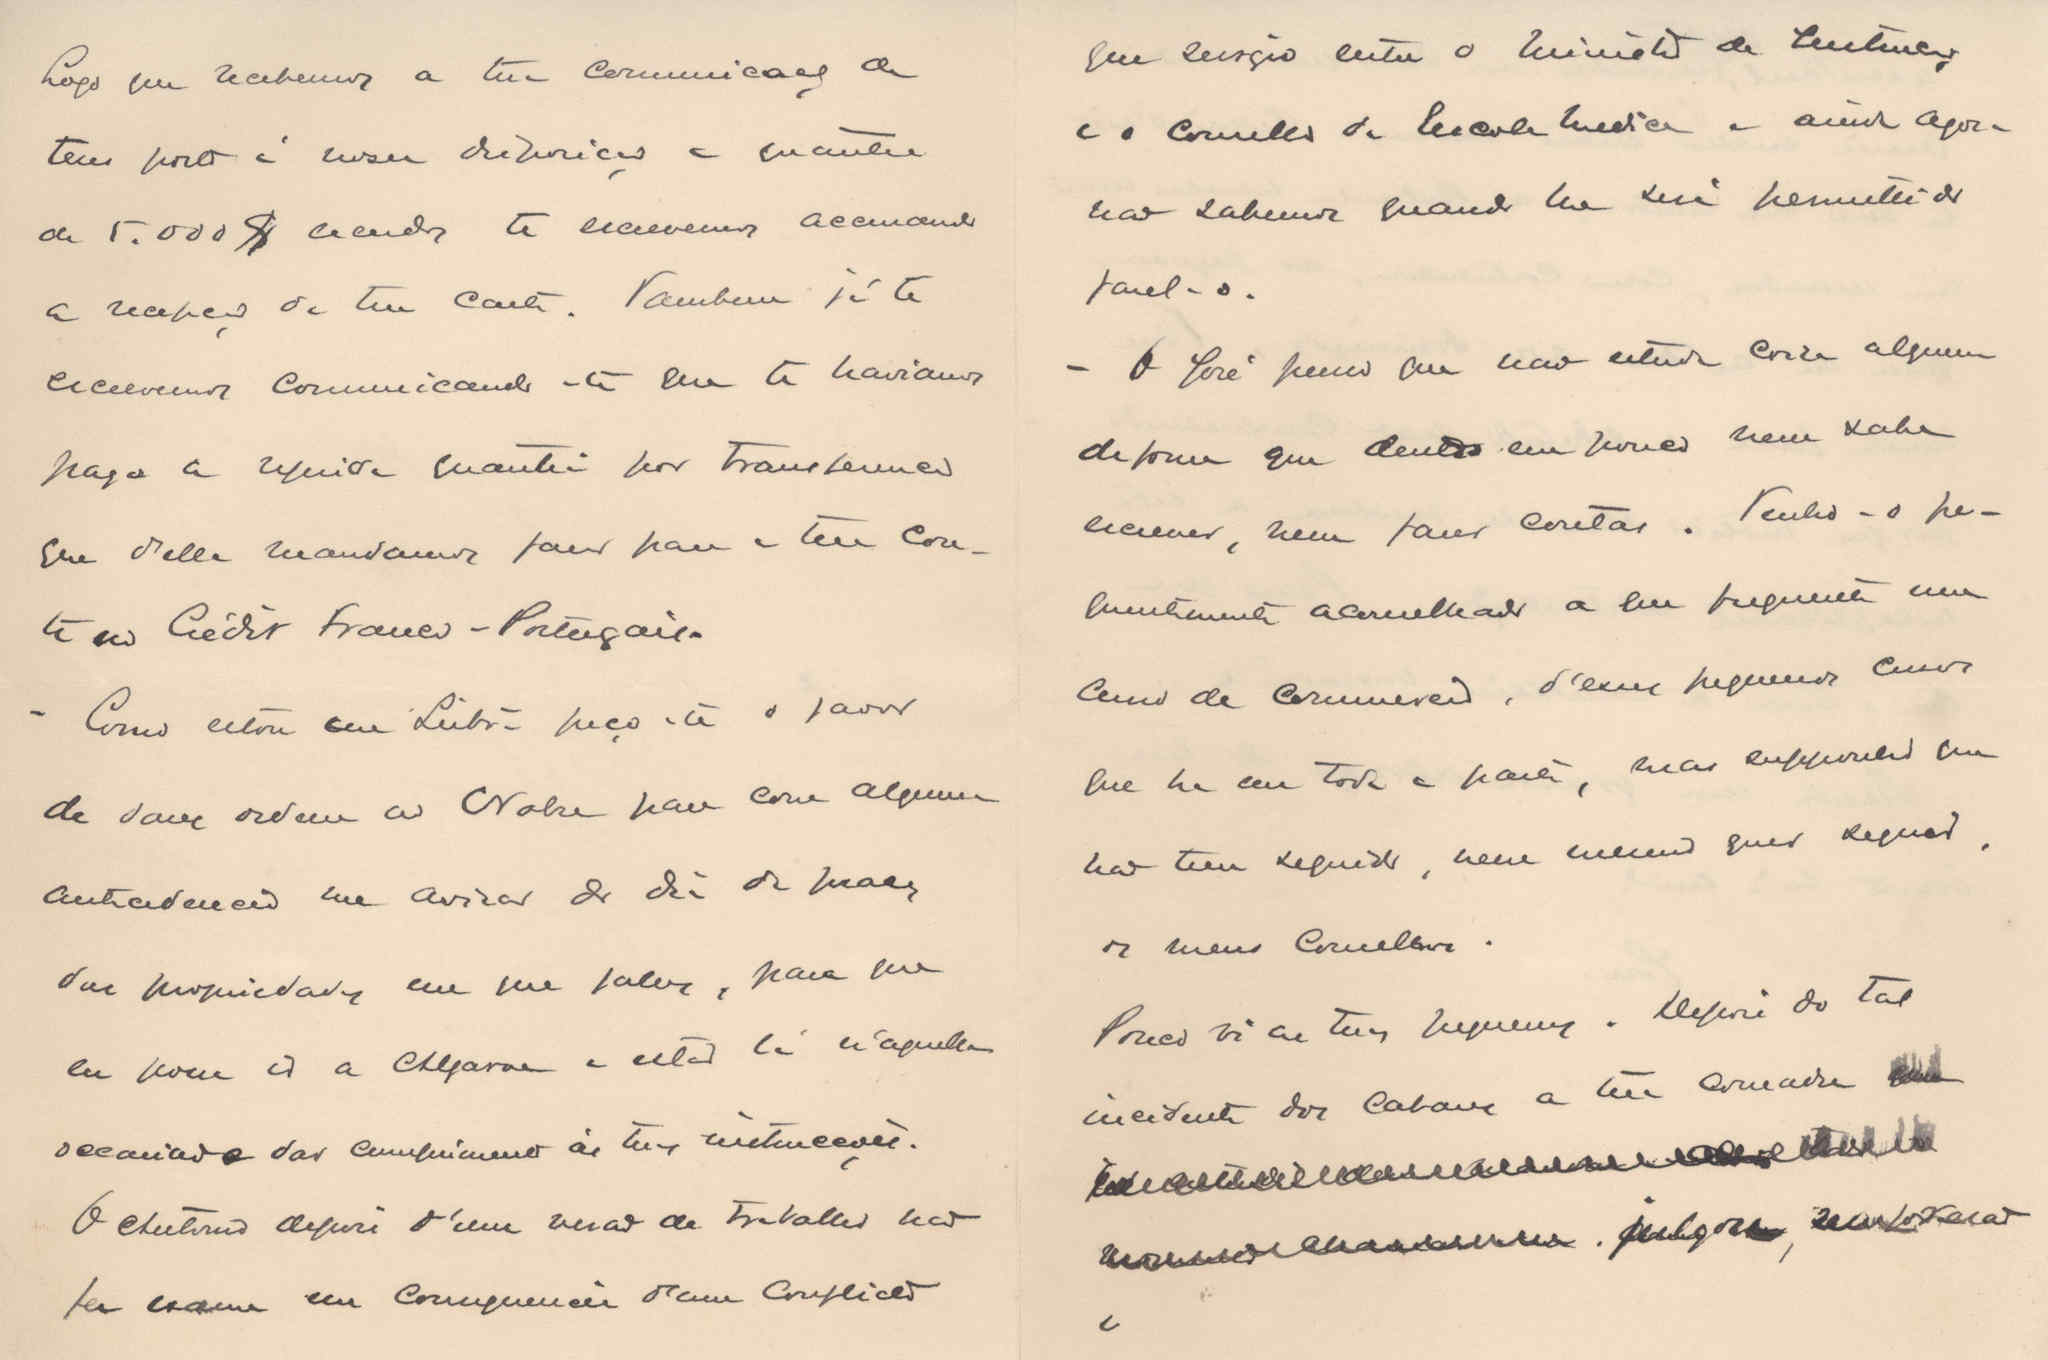 Logo que recebemos a tua comunicação de
teres posto á nossa disposição a quantia
de 5.000$ escudos te escrevemos accusando
a recepção da tua carta. Tambem já te
escrevemos comunicando-te que te haviamos
pago a referida quantia por transferencia
que d'ella mandamos fazer para a tua con-
ta no Crédit Franco-Portugais.
- Como estou em Lisboa peço-te o favor
de dares ordem ao Nobre para com alguma
antecedencia me avisar do dia da praça
das propriedades em que fallas, para que
eu possa ir a Algarve e estar lá n'aquella
occasião e dar cumprimento ás tuas instrucções.
O Antonio depois d'um verão de trabalho não
fez exame em consequencia d'um conflicto
que surgio entre o Ministro da Instrucção
e o Conselho da Escola Medica e ainda agora
não sabemos quando lhe será permittido
fazel-o.
- O José penso que não estuda coisa alguma
de forma que dentro em pouco nem sabe
escrever, nem fazer contas. Tenho-o fre-
quentemente aconselhado a que frequente um
curso de commercio, d'esses pequenos cursos
que ha em toda a parte, mas supponho que
não tem seguido, nem mesmo quer seguir,
os meus conselhos.
Pouco vi as tuas pequenas. Depois do tal
incidente dos a tua comadre
julgou,
e